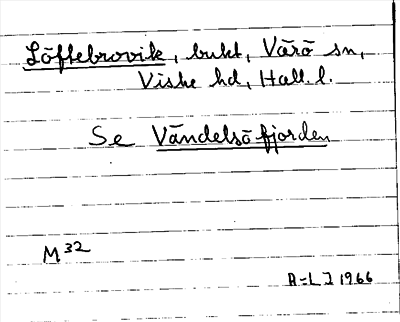 Löftebrovik, bukt, Värö sn,
Viske hd, Hall. l.
Se Vändelsöfjorden
M32
R-L J 1966